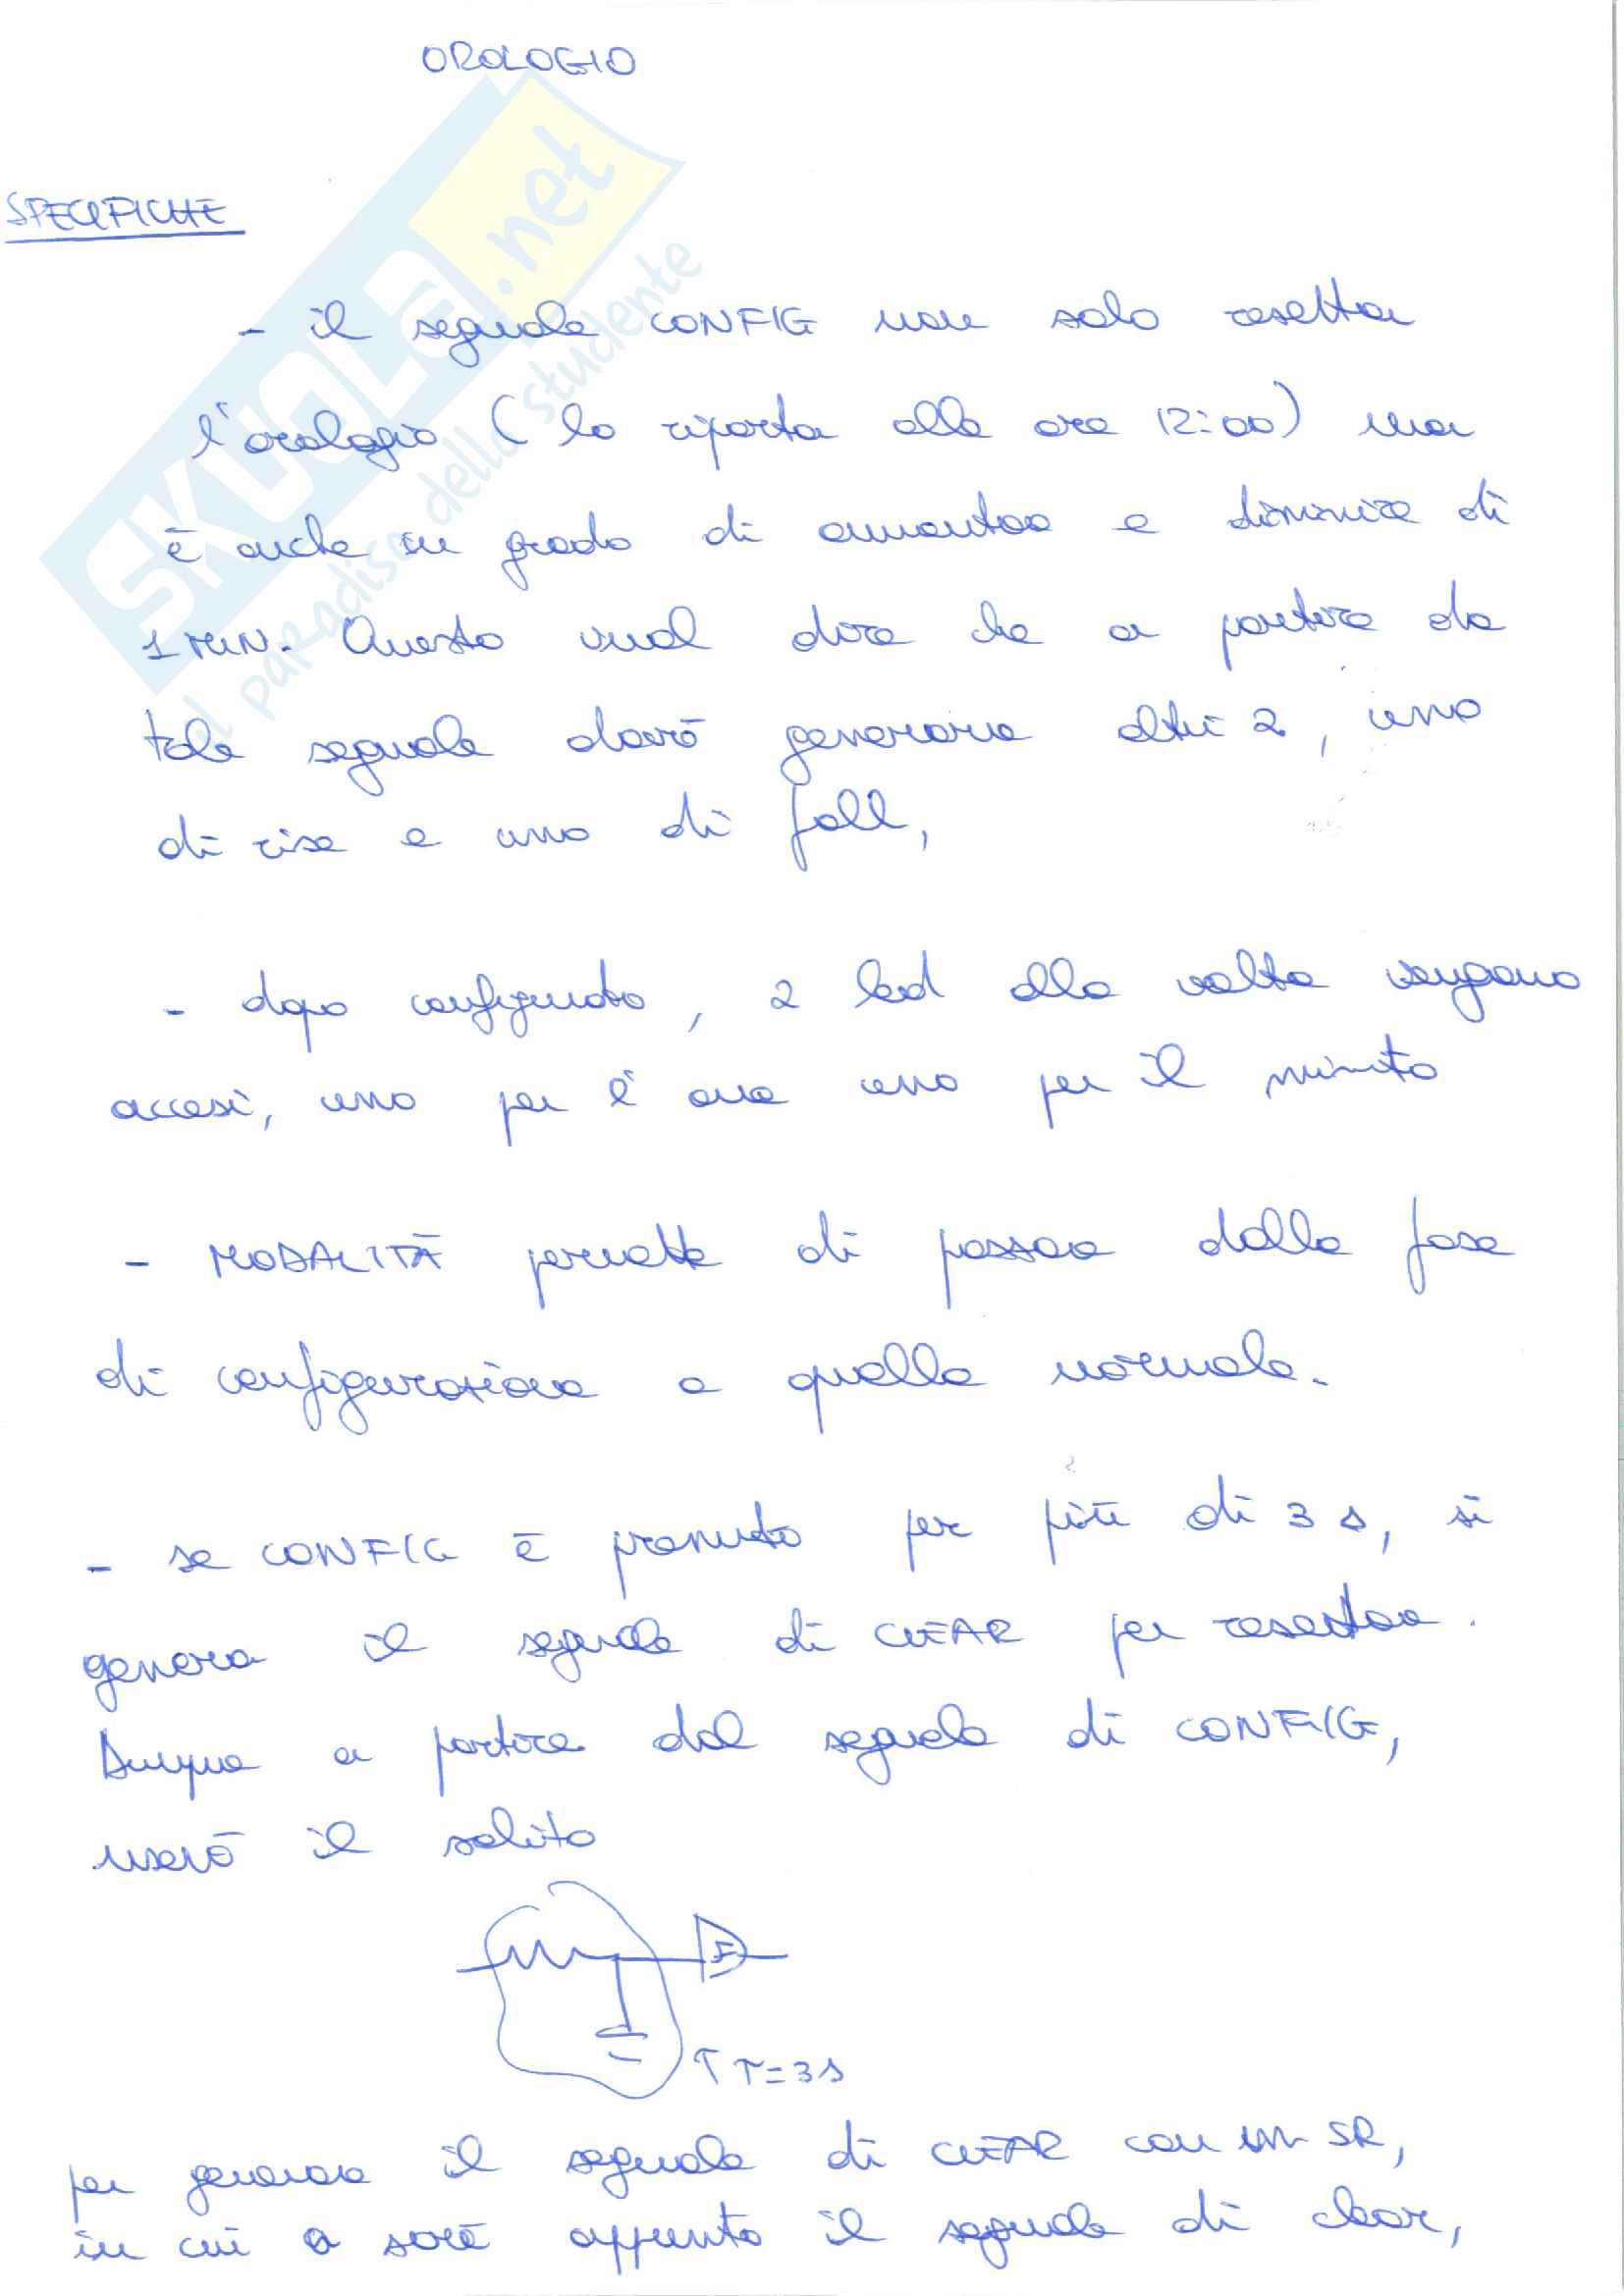 OROLOGIO
SPECIFICHE
- il segnale CONFIG non solo resetta
l'orologio (lo riporta alle ore 12:00) ma
è anche in grado di aumentare e diminuire di
1 MIN. Questo vuol dire che a partire da
tale segnale dovrò generarne altri 2, uno
di rise e uno di fall,
- dopo configurato, 2 led alla volta vengono
accesi, uno per l'ora uno per il minuto
- MODALITÀ permette di passare dalla fase
di configurazione a quella normale.
- se CONFIG è premuto per più di 3 s, si
genera il segnale di CLEAR per resettare.
Dunque a partire dal segnale di CONFIG,
userò il solito
T T=3s
per generare il segnale di CLEAR con un SR,
in cui Q sarà appunto il segnale di clear,
SKUOLA.net
il paradiso dello studente